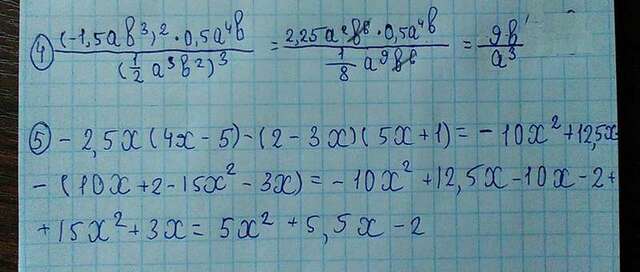 ④ (-1,5ab³)² · 0,5a⁴b / (½ a³b²)³ = 2,25a²b⁶ · 0,5a⁴b / ⅛ a⁹b⁶ = 9b / a³
⑤ - 2,5x (4x - 5) - (2 - 3x)(5x + 1) = - 10x² + 12,5x
- (10x + 2 - 15x² - 3x) = - 10x² + 12,5x - 10x - 2 +
+ 15x² + 3x = 5x² + 5,5x - 2